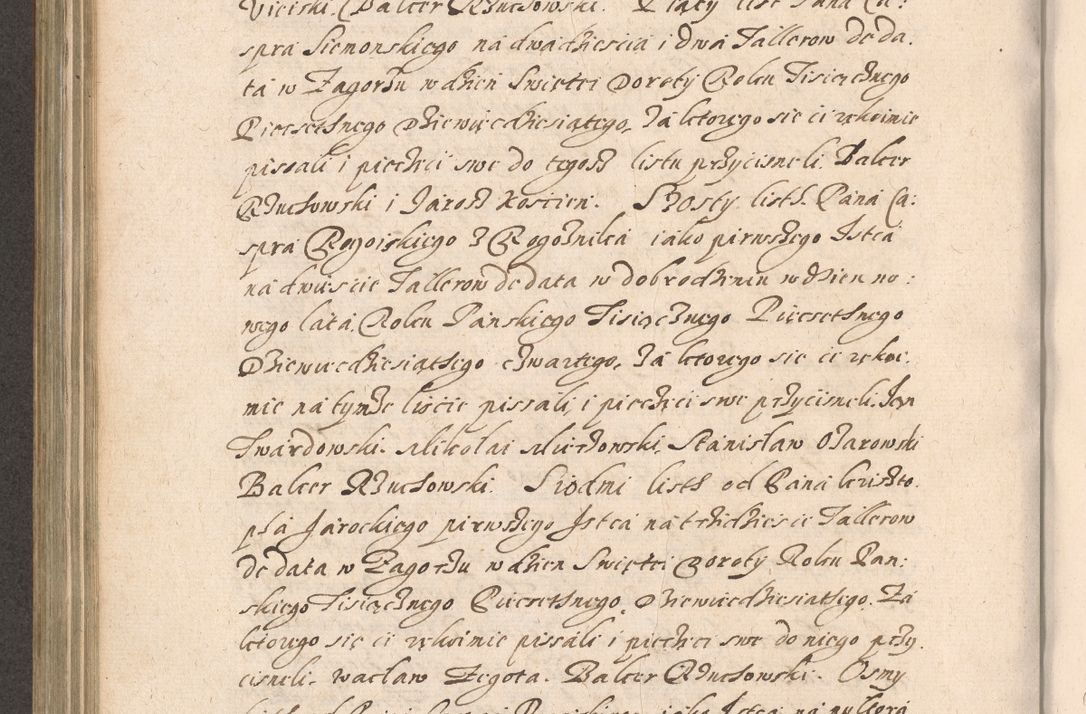 Viciski. Balcer Rzuchowski. Piąty list Pana Ca:
spra Siemonskiego na dwadziescia i dwa Tallerow de da.
ta w Zagorzu w dzien Swiętei Doroty Roku Tisiącznego
Piecsethnego Dziewiecdziesiątego, Za ktorego się ci rękoimie
pissali i pieczęci swe do tegosz listu przycisneli. Balcer
Rzuchowski i Jarosz Koscien. Szosty list. Pana Ca:
spra Rogoiskiego z Rogoznika iako pirwszego Istca
na dwiescie Tallerow de data w dobrodzieniu w dzien no:
wego lata, Roku Panskiego Tisiącznego Piecsethnego
Dziewiecdziesiąthego czwartego, Za ktorego się ci rękoi:
mie na tymże liscie pissali, i pieczęci swe przycisneli. Jan
Twardowski. Mikolai Mierzowski, Stanislaw Ozarowski
Balcer Rzuchowski. Siodmi listh od Pana kriszto
pha Jarockiego pirwszego Istca na trzidziesci Tallerow
de data w Zagorzu w dzien Swiętei Doroty Roku Pan:
skiego Tisiącznego Piecsethnego, Dziewiecdziesiathego. Za
ktorego się ci rękoimie pissali i pieczęci swe do niego przy.
cisneli. Waclaw Zegota. Balcer Rzuchowski. Osmy